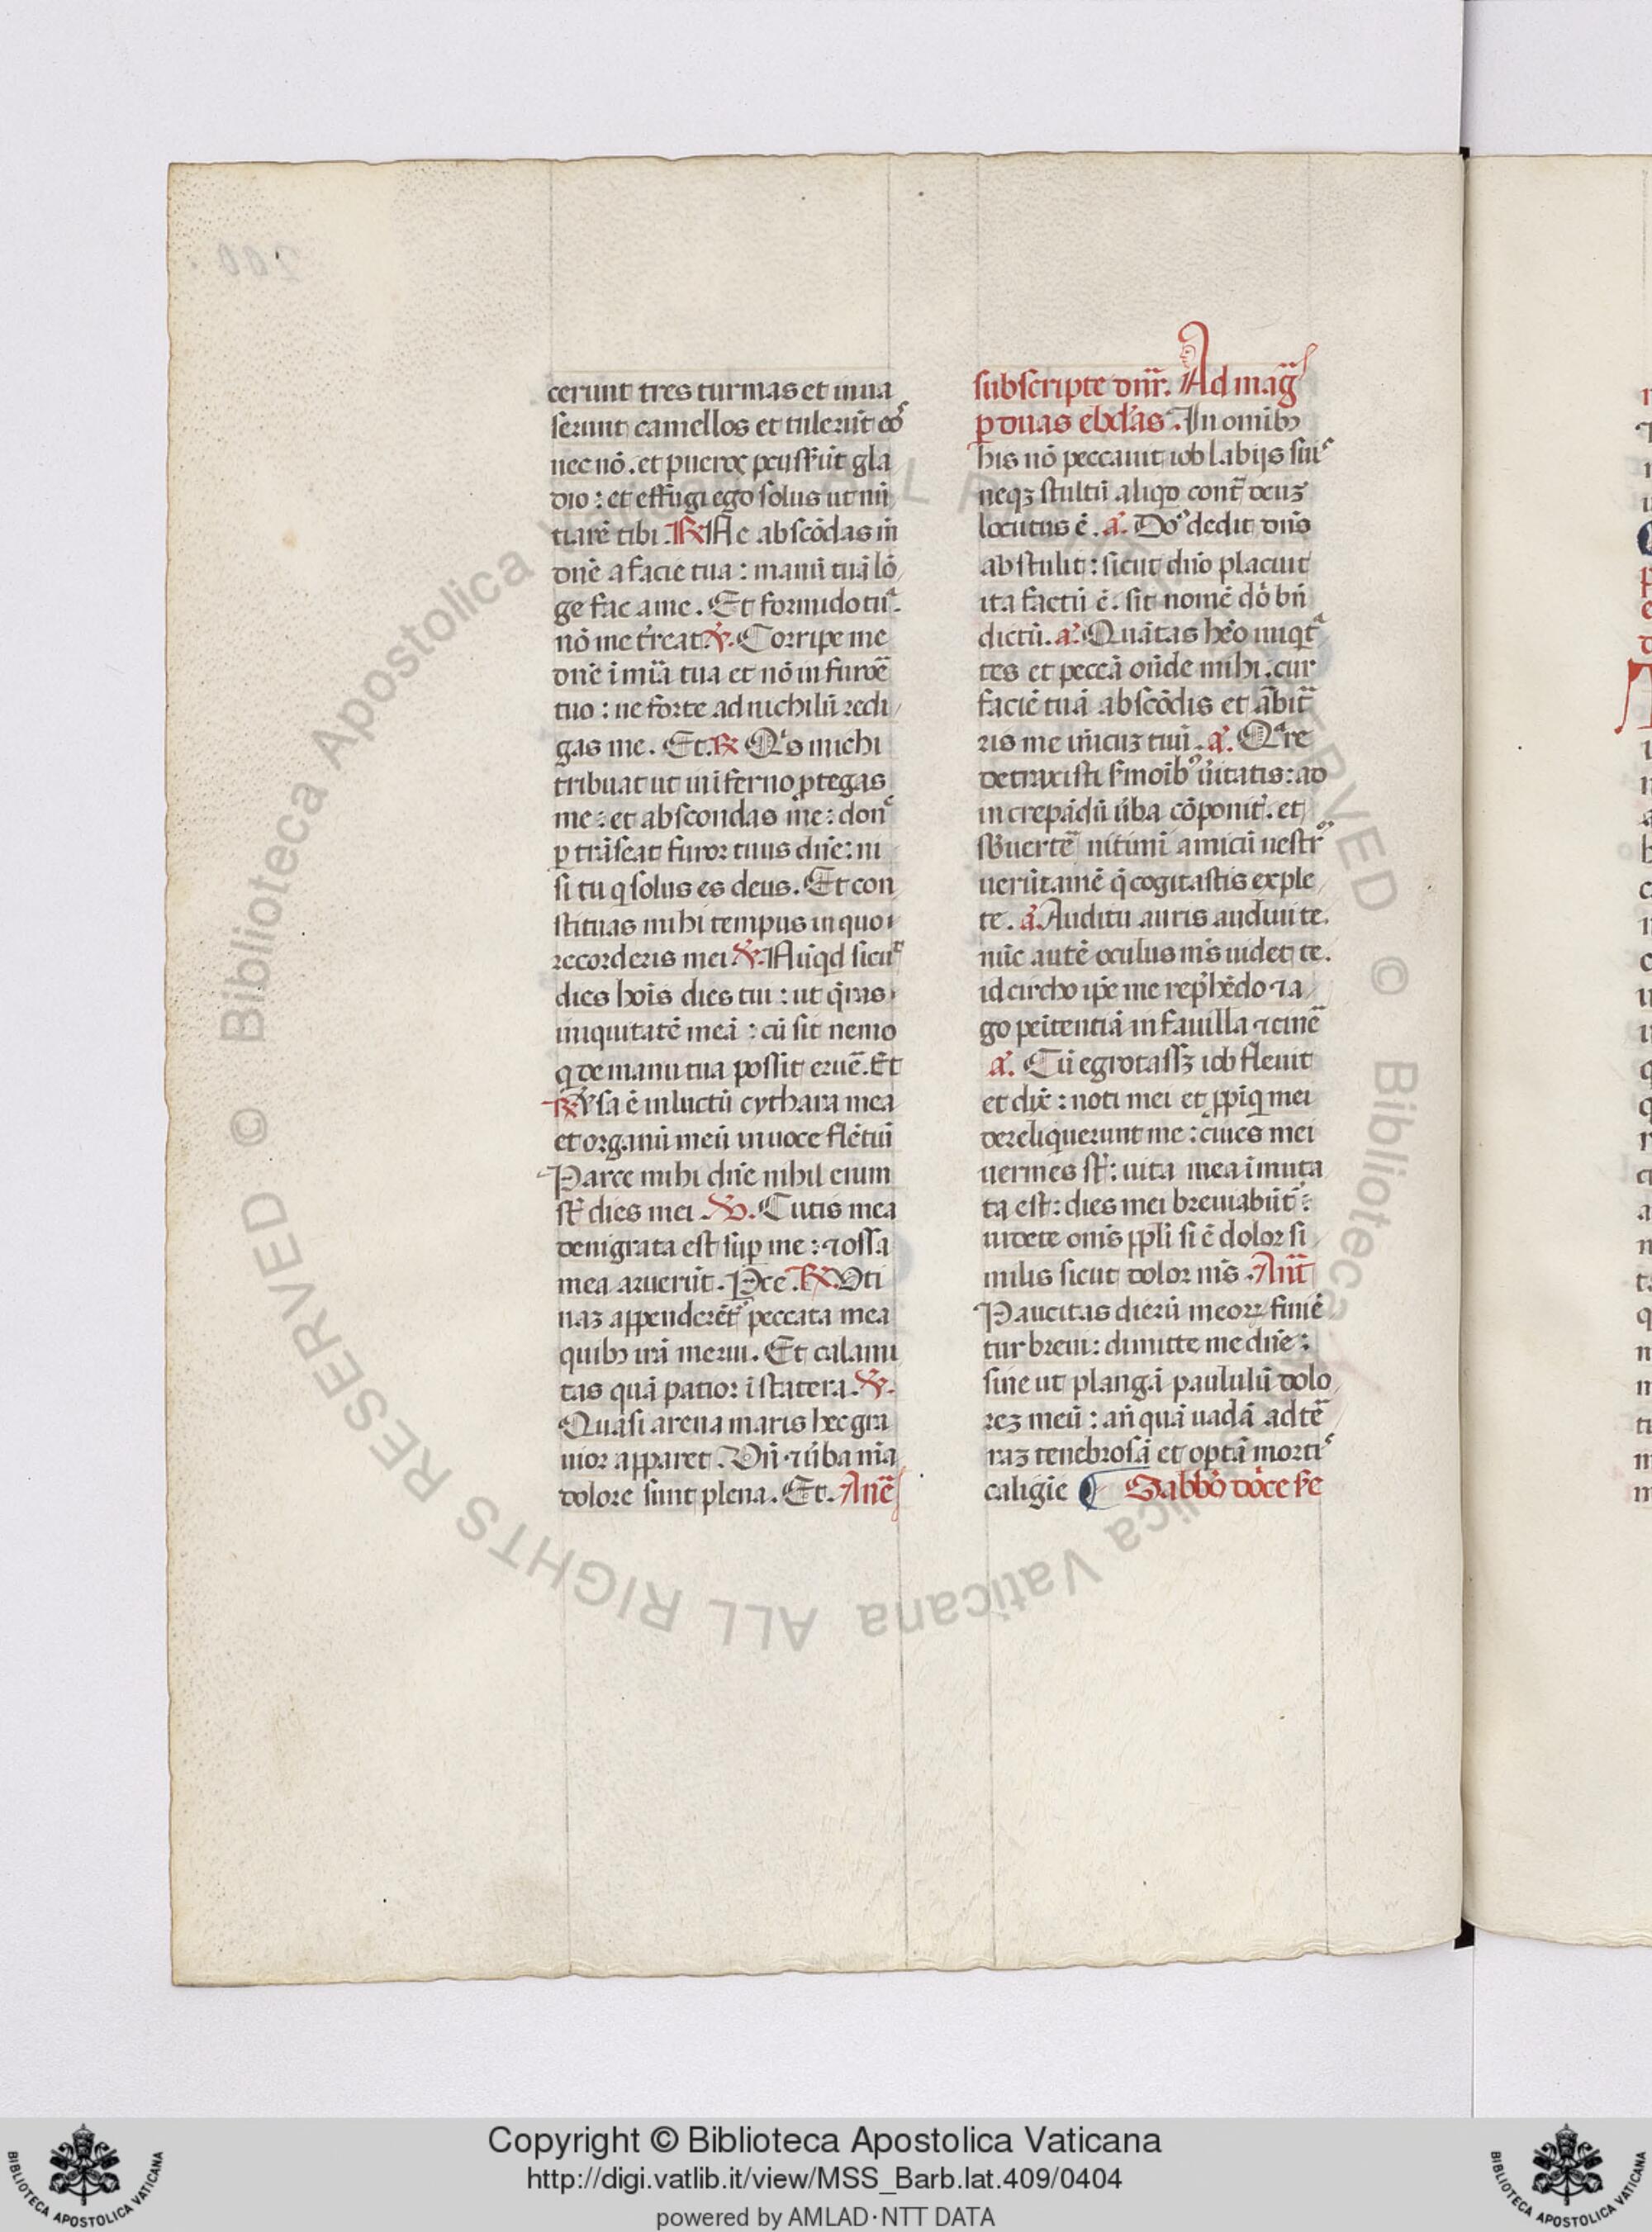 cerunt tres turmas et inua
serunt camellos et tulerūt eoˢ
nec nō. et pueros pcusserūt gla
dio : et effugi ego solus ut nū
tiarē tibi. ℟ Ne abscōdas m̄
dn̄e a facie tua : manū tuā lō
ge fac a me. Et formido tuᵃ
nō me t̄reat. ℣. Corripe me
dn̄e ī mīa tua et nō in furoē
tuo : ne forte ad nichilū redi
gas me. Et. ℟ Qⁱs michi
tribuat ut in iferno ꝓtegas
me : et abscondas me : donᶜ
ptrāseat furor tuus dn̄e : ni
si tu q solus es deus. Et con
stituas mihi tempus in quo
recorderis mei ℣. Nūqd sicuᵗ
dies hoīs dies tui : ut qͥras
iniquitatē meā : cū sit nemo
q de manu tua possit eruē. Et
℟ Vsa ē in luctū cythara mea
et organū meū in uoce flētiū
Parce mihi dn̄e nihil enim
st̄ dies mei. ℣. Cutis mea
denigrata est sup me : ⁊ ossa
mea aruerūt. Pce. ℟ Uti
naʒ appenderēt᷑ peccata mea
quibꝫ irā merui. Et calami
tas quā patior ī statera. ℣.
Quasi arena maris hec gra
uior apparet. Un̄ ⁊ ūba m̄a
dolore sunt plena. Et. An̄e
subscripte dn̄r. Ad maḡ
p duas ebd'as. In omibꝫ
his nō peccauit iob labijs suiˢ
neqꝫ stultū aliqd cont̄ deuʒ
locutus ē. a᷑. Doˢ dedit dn̄s
abstulit : sicut dn̄o placuit
ita factū ē. sit nomē do bn̄
dictū. a᷑. Quātas hēo iniqᵗᵃ
tes et peccā ōnde mihi. cur
faciē tuā abscōdis et ābit̄
ris me inīcuʒ tuū. a᷑. Qᵃre
detraxisti s̄moībꝰ ūitatis : ad
increpādū ūba cōponit᷑. et
sb̄uertē nitimī amicū uestrᵐ
uerūtamē q̄ cogitastis exple
te. a᷑. Auditu auris audiui te.
nūc autē oculus m̄s uidet te.
idcircho ip̄e me rep̄hēdo ⁊ a
go peītentiā in fauilla ⁊ cinē
a᷑. Cū egrotassꝫ iob fleuit
et dix̄ : noti mei et ꝓpīq mei
dereliquerunt me : ciues mei
uermes st̄ : uita mea īmuta
ta est : dies mei breuiabūt᷑ :
uidete om̄s ppl̄i si ē dolor si
milis sicut dolor m̄s. An̄t
Paucitas dierū meoꝝ finiē
tur breui : dimitte me dn̄e :
sine ut plangā paululū dolo
reʒ meū : an̄ quā uadā ad tē
raʒ tenebrosā et optā mortiˢ
caligīe ¶ Sabbō dōce se
Copyright © Biblioteca Apostolica Vaticana
http://digi.vatlib.it/view/MSS_Barb.lat.409/0404
powered by AMLAD·NTT DATA